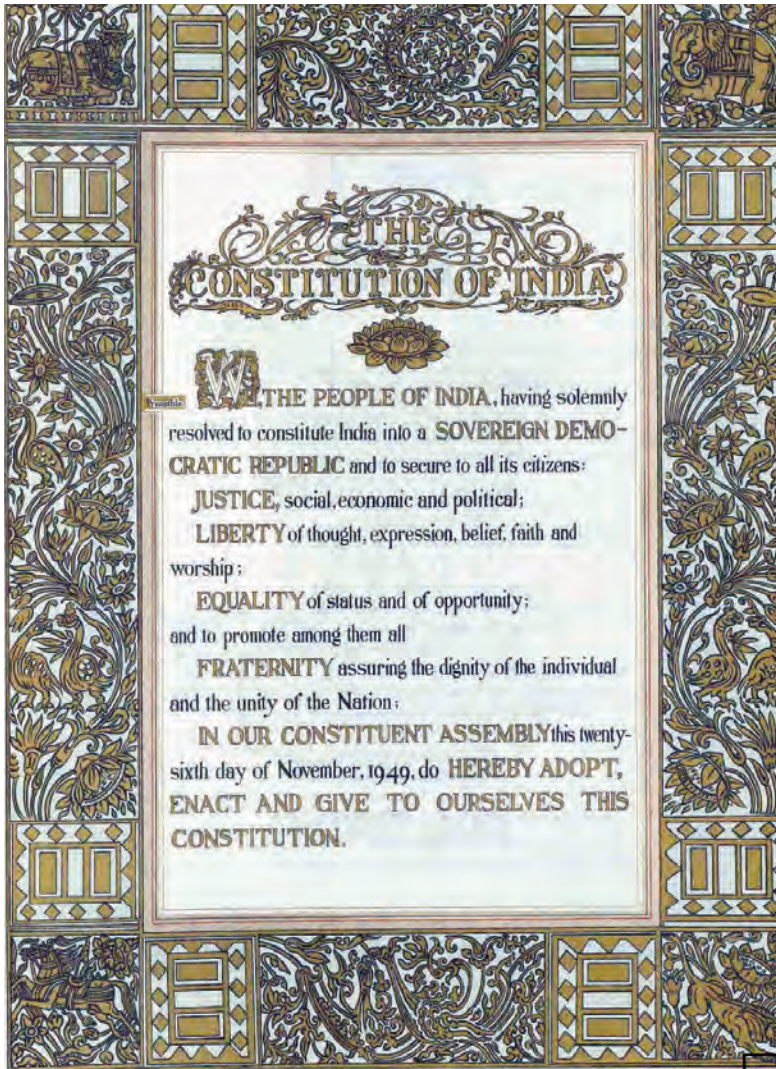 THE
CONSTITUTION OF INDIA
Preamble
WE, THE PEOPLE OF INDIA, having solemnly
resolved to constitute India into a SOVEREIGN DEMO-
CRATIC REPUBLIC and to secure to all its citizens:
JUSTICE, social, economic and political;
LIBERTY of thought, expression, belief, faith and
worship;
EQUALITY of status and of opportunity;
and to promote among them all
FRATERNITY assuring the dignity of the individual
and the unity of the Nation;
IN OUR CONSTITUENT ASSEMBLY this twenty-
sixth day of November, 1949, do HEREBY ADOPT,
ENACT AND GIVE TO OURSELVES THIS
CONSTITUTION.